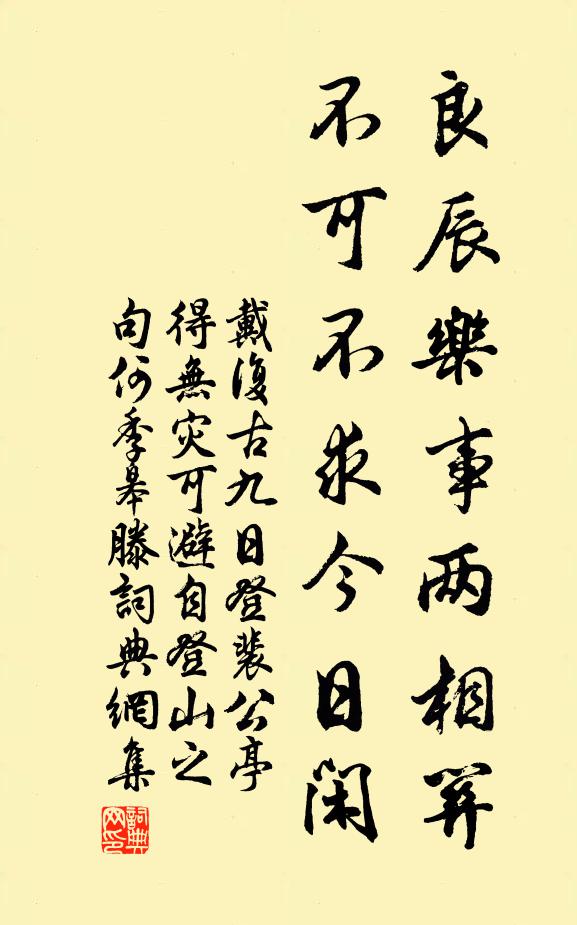 良辰樂事两相關
不可不求今日閑
戴復古九日登裴公亭
得無灾可避自登山之
句何季皋滕詞典網集
詞典网印